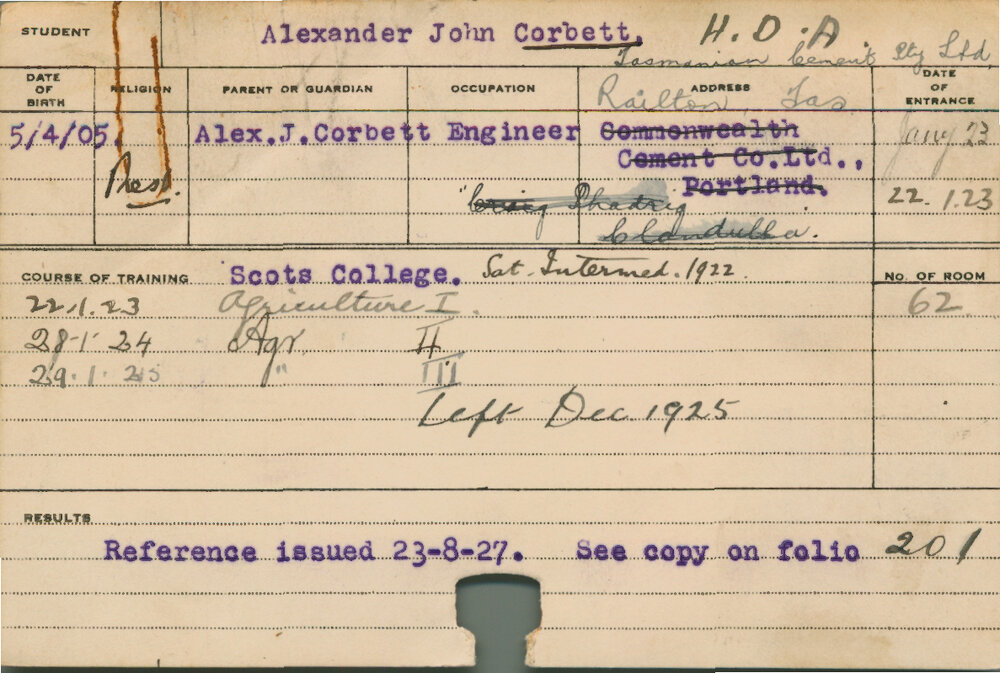 STUDENT Alexander John Corbett, H.D.A
Tasmanian Cement Pty Ltd
DATE OF BIRTH RELIGION PARENT OR GUARDIAN OCCUPATION ADDRESS DATE OF ENTRANCE
Railton, Tas
5/4/05. Alex.J.Corbett Engineer Commonwealth Jany 23
Cement Co.Ltd.,
Pres. Portland. 22.1.23
"Craig Phadrig
Clandulla.
COURSE OF TRAINING Scots College. Sat Intermed. 1922. No. OF ROOM
22.1.23 Agriculture I. 62
28-1-24 Agr. II
29.1.25 " III
Left Dec 1925
RESULTS
Reference issued 23-8-27. See copy on folio 201